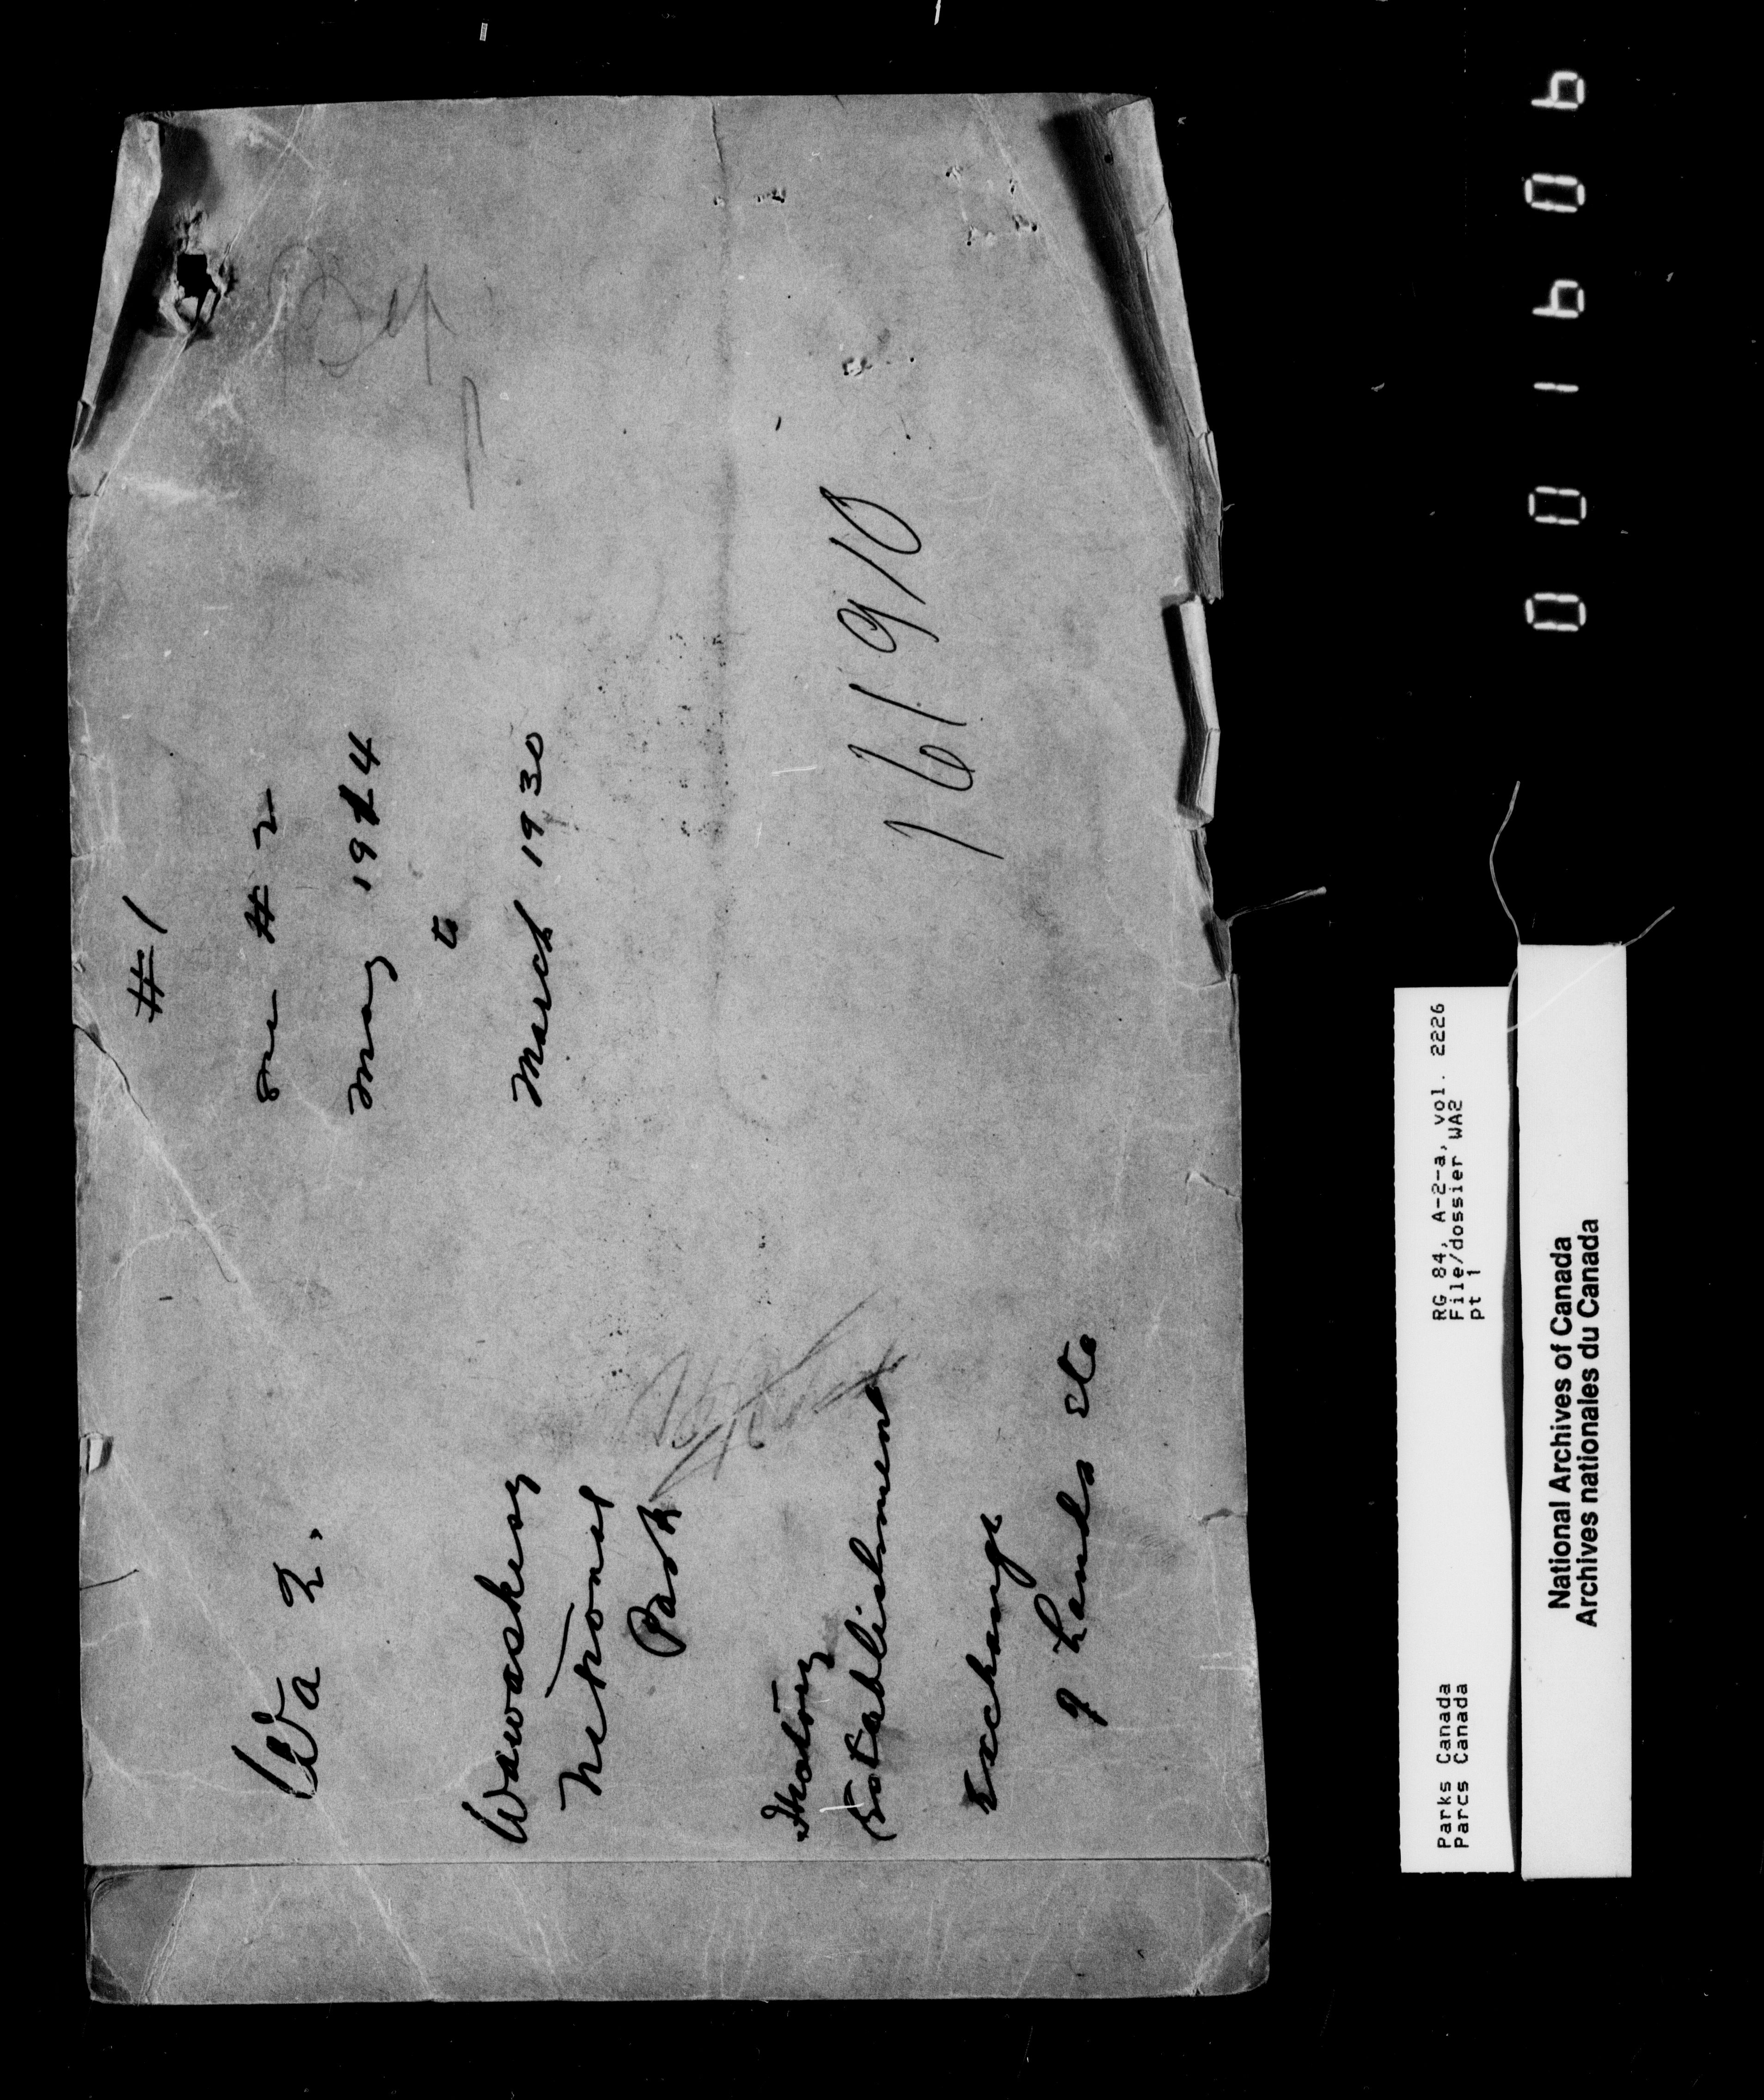 #1
Wa 2.
See #2
May 1914
to
March 1930
Wawaskesy
National
Park
History
Establishment
Exchange
of Lands etc
161910
Parks Canada
Parcs Canada
RG 84, A-2-a, vol. 2226
File/dossier WA2
pt 1
National Archives of Canada
Archives nationales du Canada